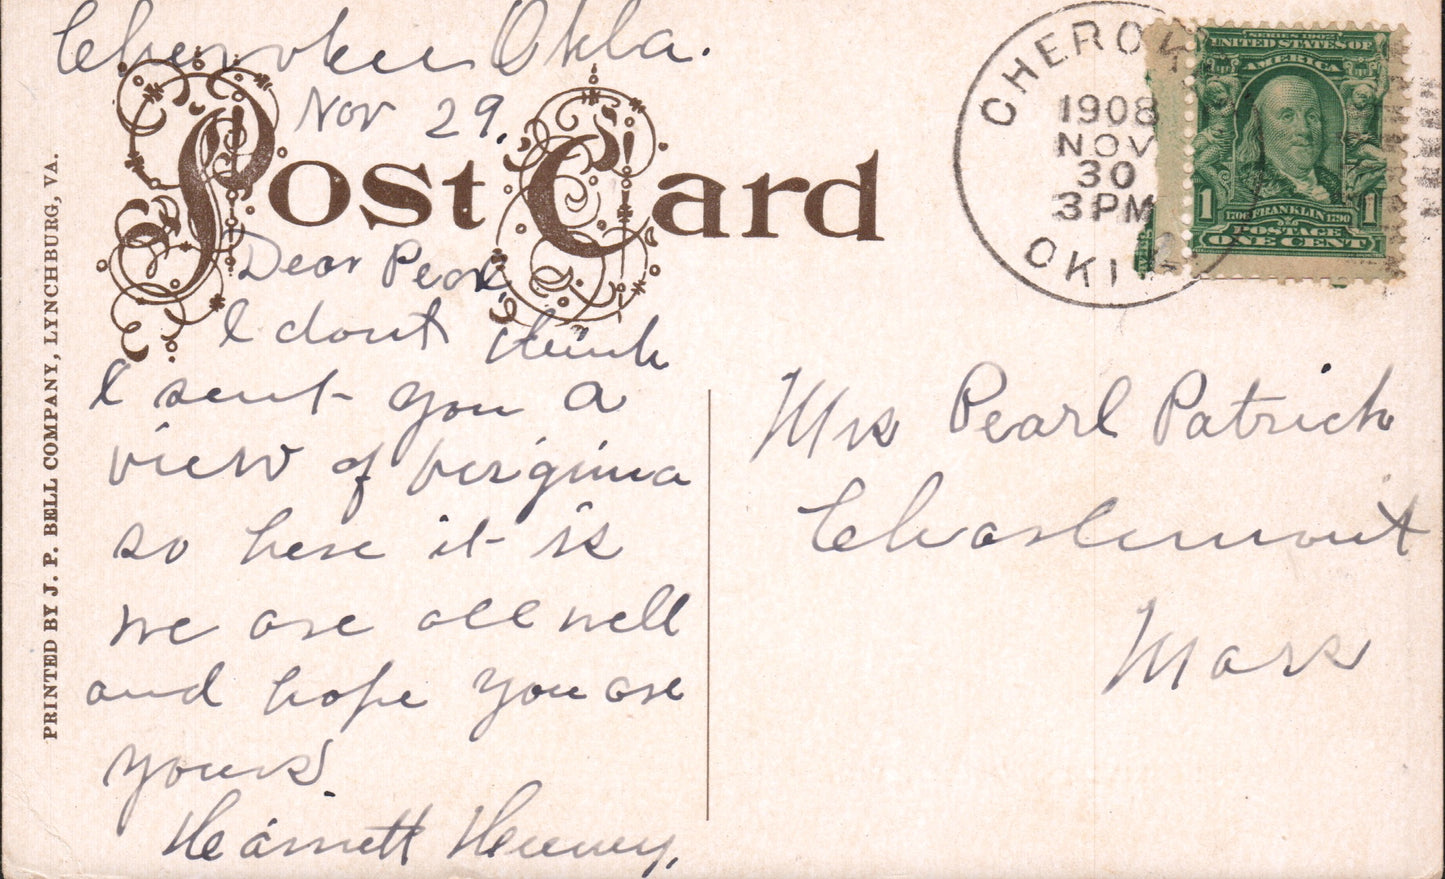 Cherokee Okla.
Nov 29.
Post Card
Dear Pearl
I dont think
I sent you a
view of Virginia
so here it is
we are all well
and hope you are
yours
Harriett
PRINTED BY J. P. BELL COMPANY, LYNCHBURG, VA.
CHEROK
1908
NOV
30
3PM
OKLA
SERIES 1902
UNITED STATES OF
AMERICA
1 1706 FRANKLIN 1790 1
POSTAGE
ONE CENT
Mrs Pearl Patrick
Charlemont
Mass